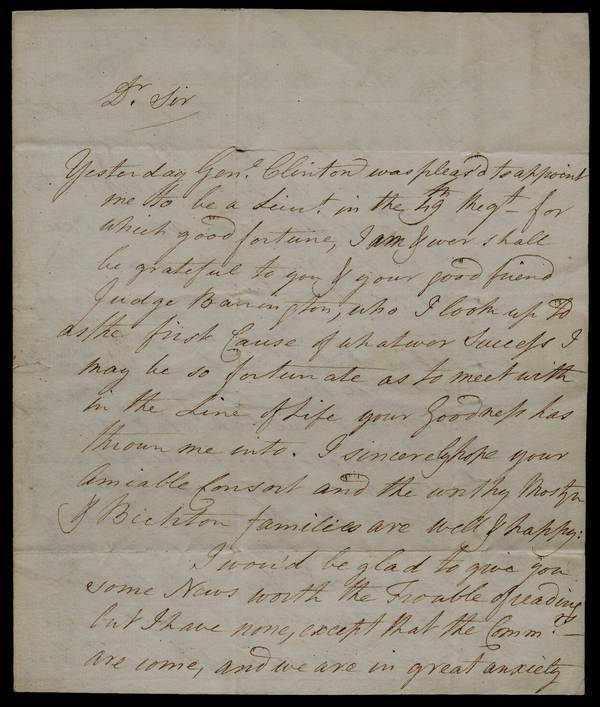 Dr. Sir
Yesterday Genl. Clinton was pleas'd to appoint
me to be a Lieut. in the 49th Regt- for
which good fortune, I am & ever shall
be grateful to you & your good friend
Judge Barrington, who I look up to
as the first Cause of whatever Success I
may be so fortunate as to meet with
in the Line of Life your Goodness has
thrown me into. I sincerely hope your
Amiable Consort and the worthy Mostyn
& families are well & happy:
I wou'd be glad to give you
some News worth the Trouble of reading
but I have none, except that the Commrs.-
are come, and we are in great anxiety